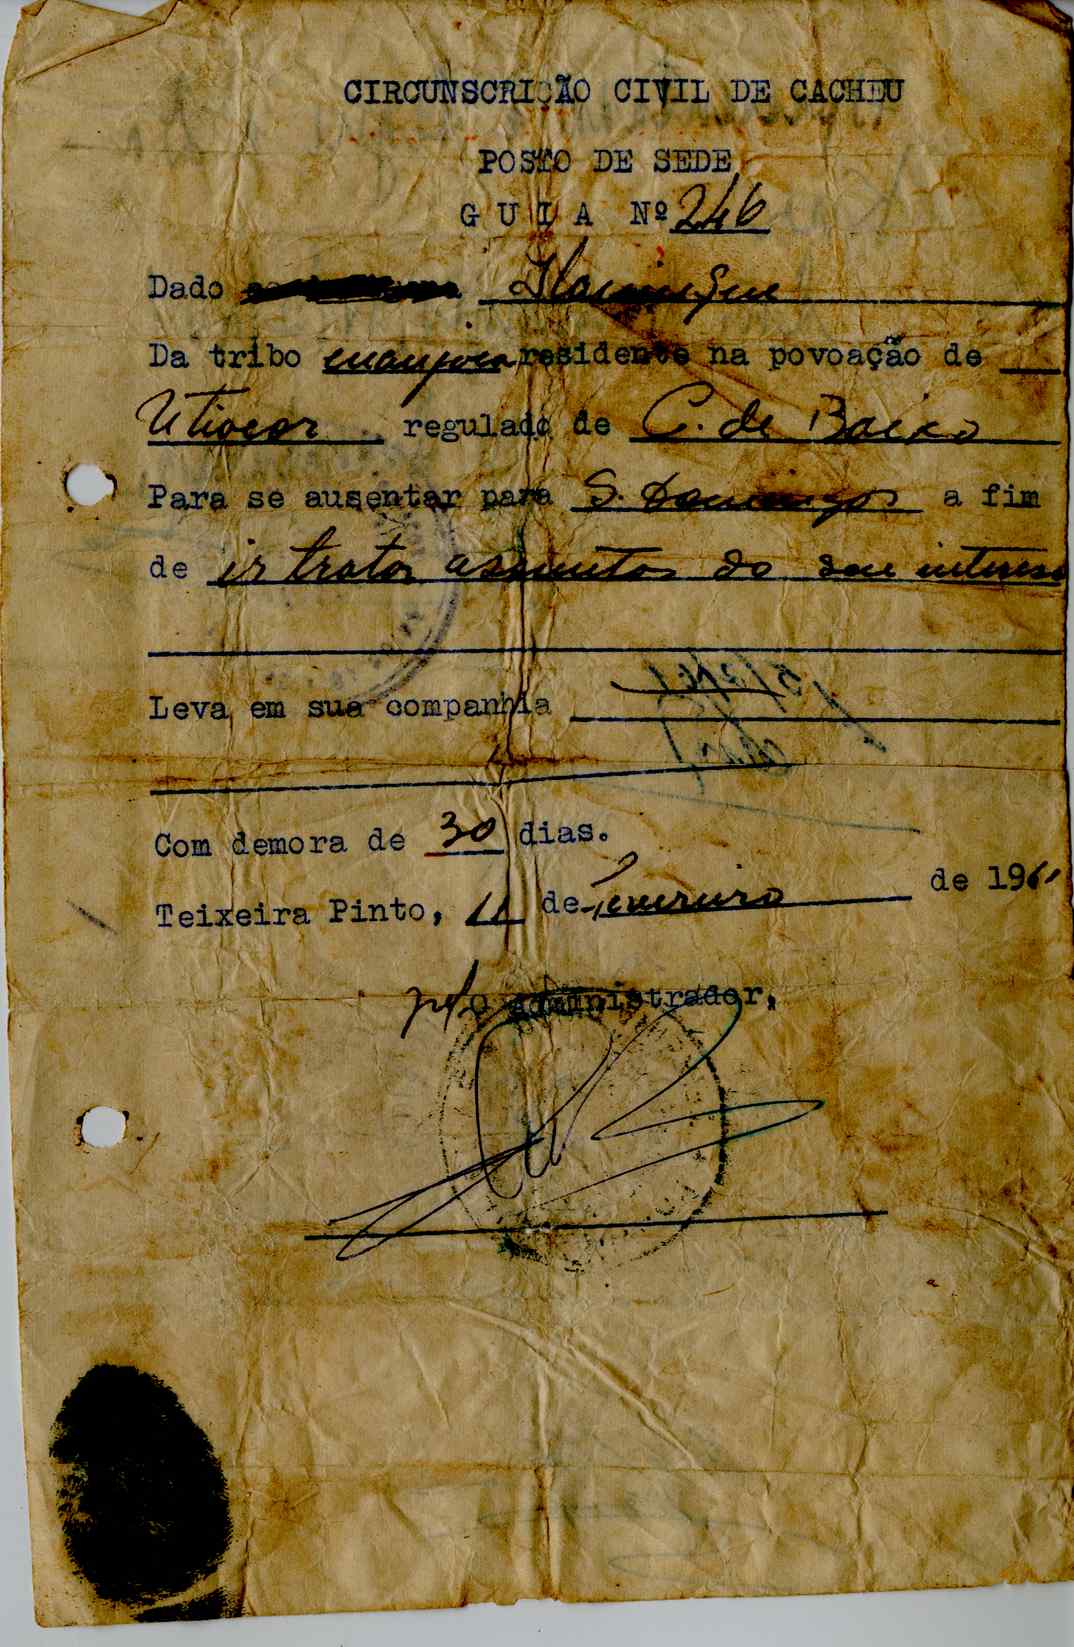 CIRCUNSCRIÇÃO CIVIL DE CACHEU
POSTO DE SEDE
GUIA Nº 246
Dado
Da tribo residente na povoação de
regulado de C. de Baixo
Para se ausentar para S. Domingos a fim
de ir tratar assuntos do seu interesse
Leva em sua companhia
Com demora de 30 dias.
Teixeira Pinto, 11 de Fevereiro de 1961
pel O Administrador,